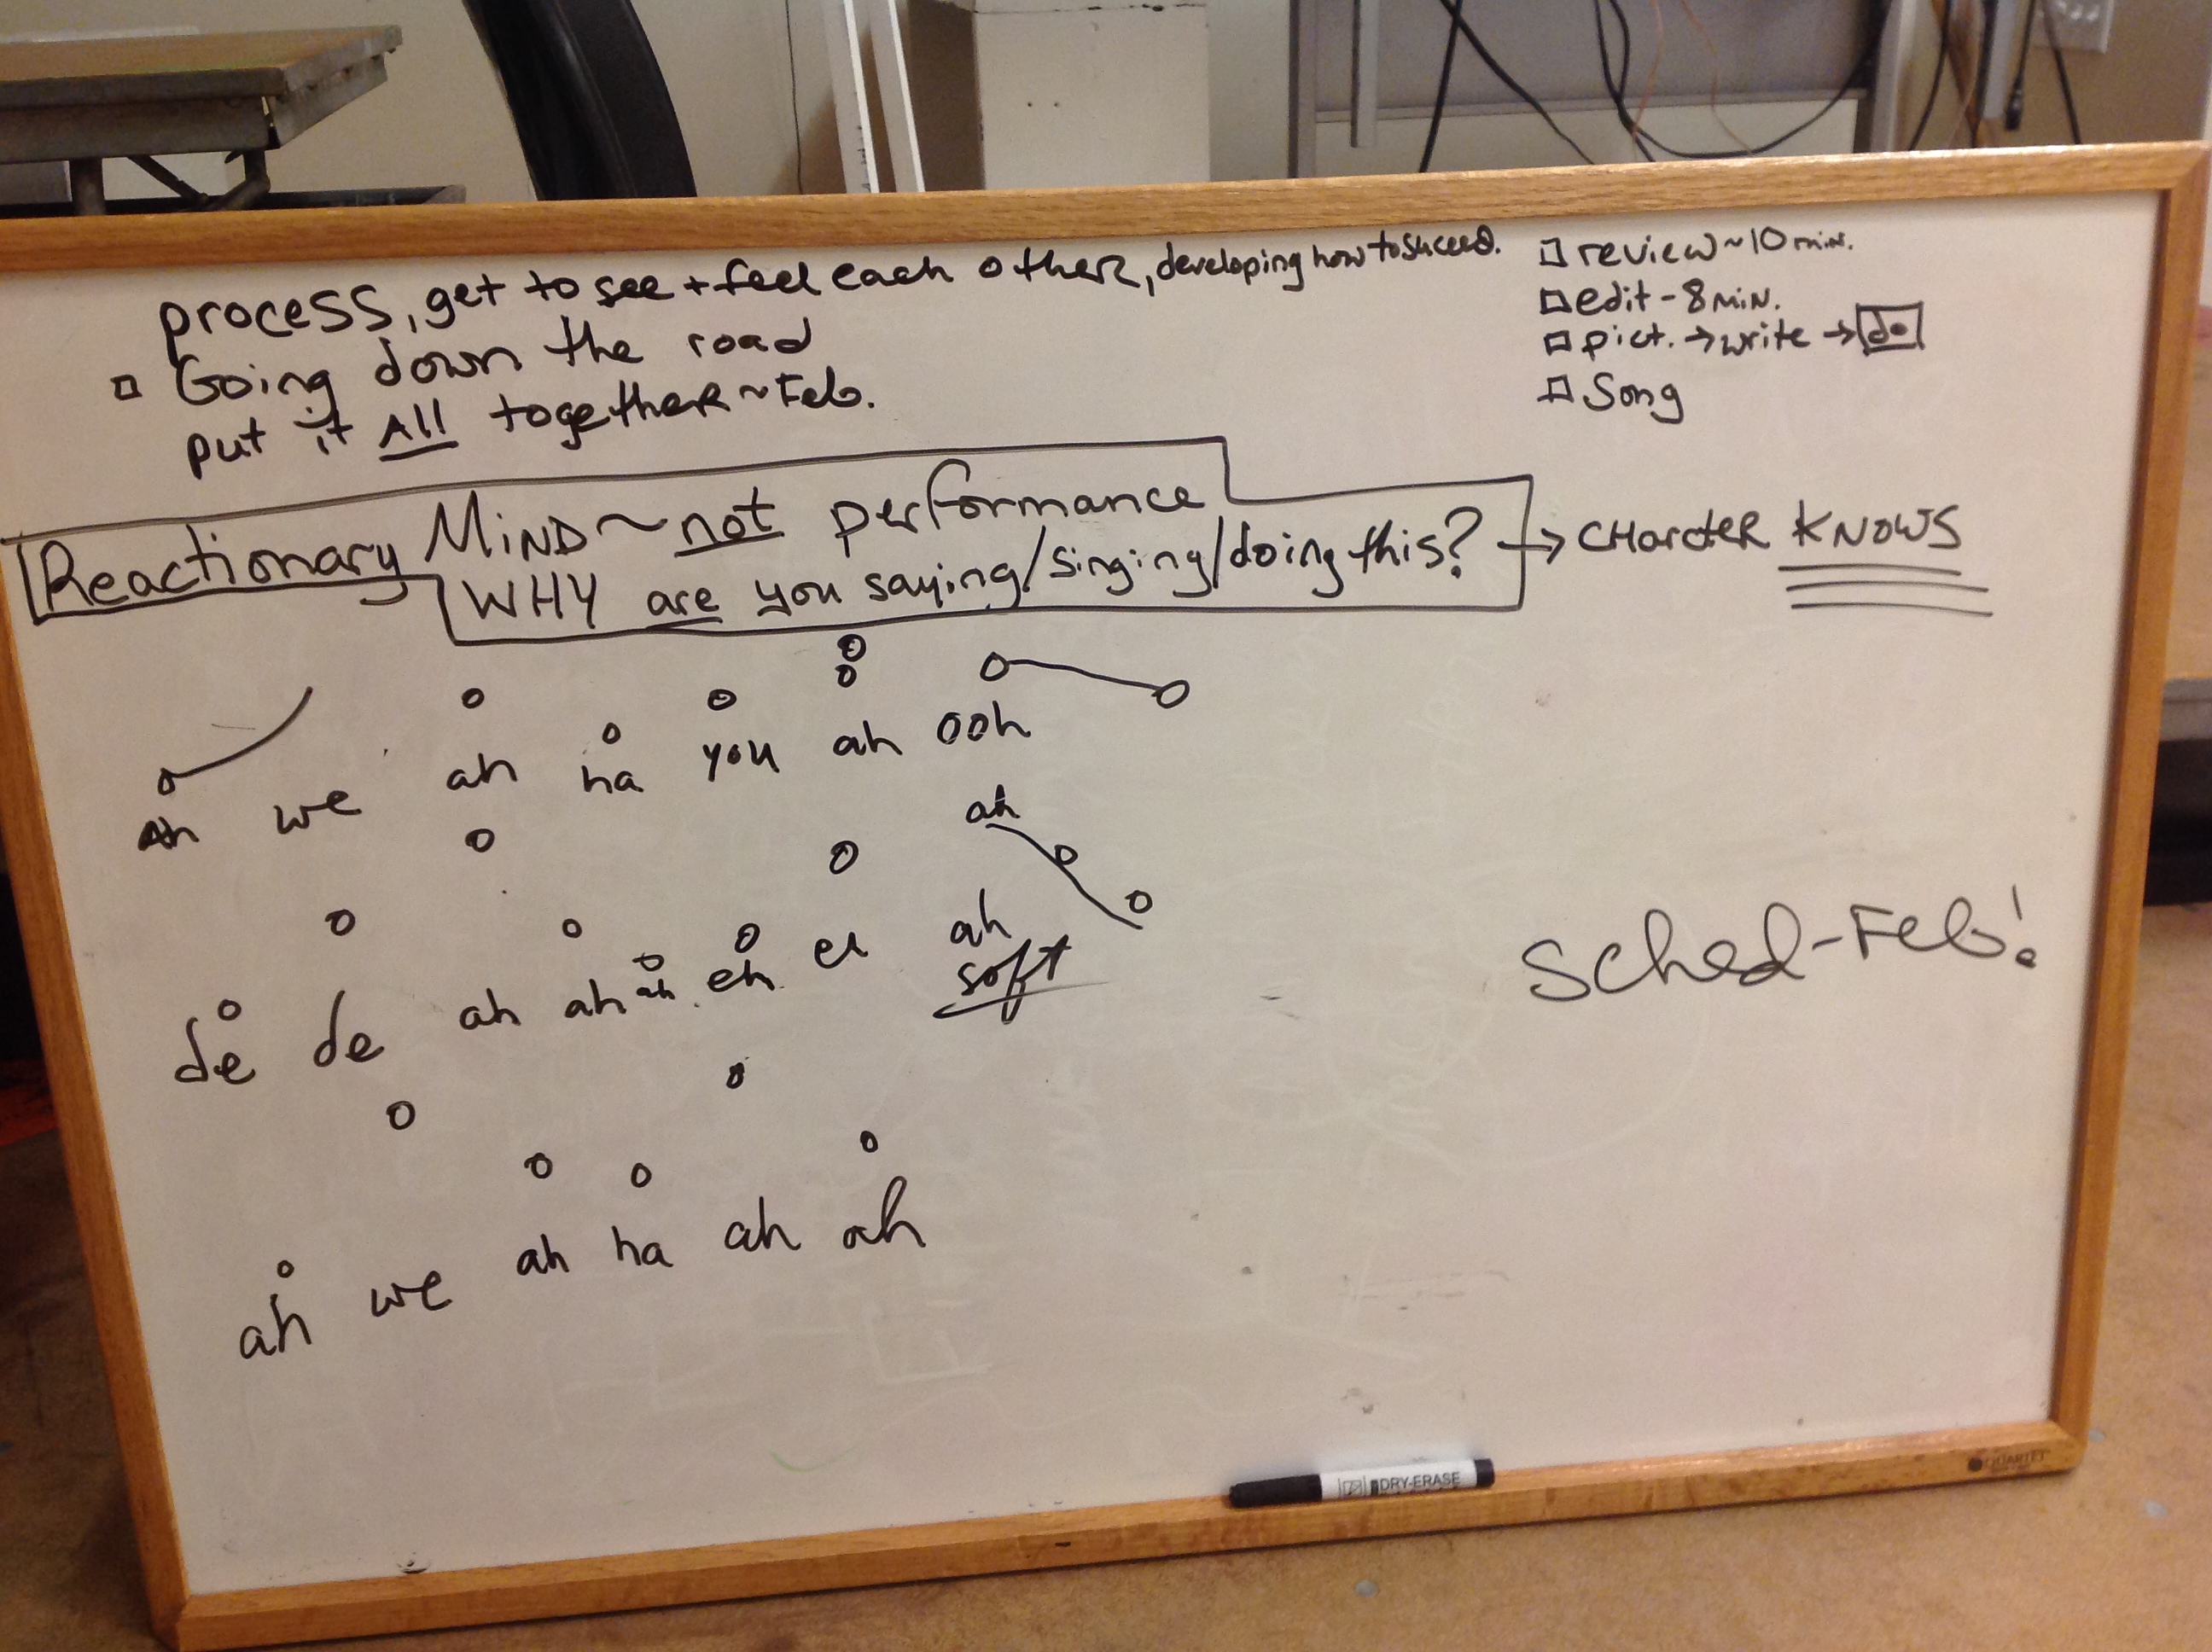 process, get to see + feel each other, developing how to succeed.
□ Going down the road
put it All together ~ Feb.
□ review ~ 10 min.
□ edit - 8 min.
□ pict. → write → do
□ Song
Reactionary MIND ~ not performance
WHY are you saying/singing/doing this? → CHarcter KNOWS
ah we ah ha you ah ooh
ah
de de ah ah ah eh el ah
soft
Sched - Feb!
ah we ah ha ah ah
DRY-ERASE
QUARTET